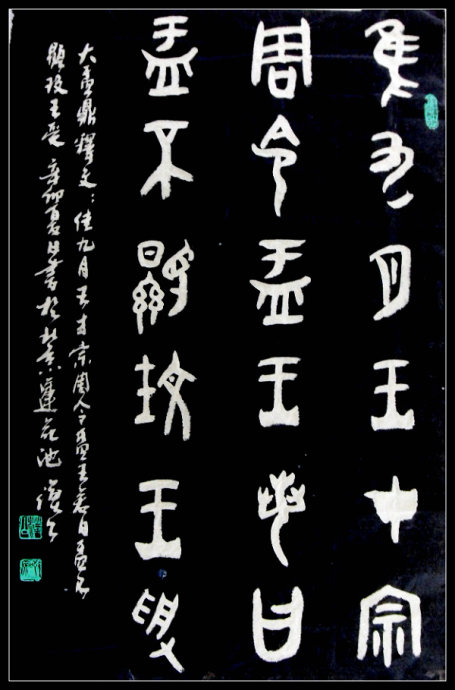 隹九月王才宗
周令盂王若曰
盂不顯玟王受
大盂鼎釋文：隹九月王才宗周令盂王若曰盂不
顯玟王受 辛卯夏日書於北京蓮花池